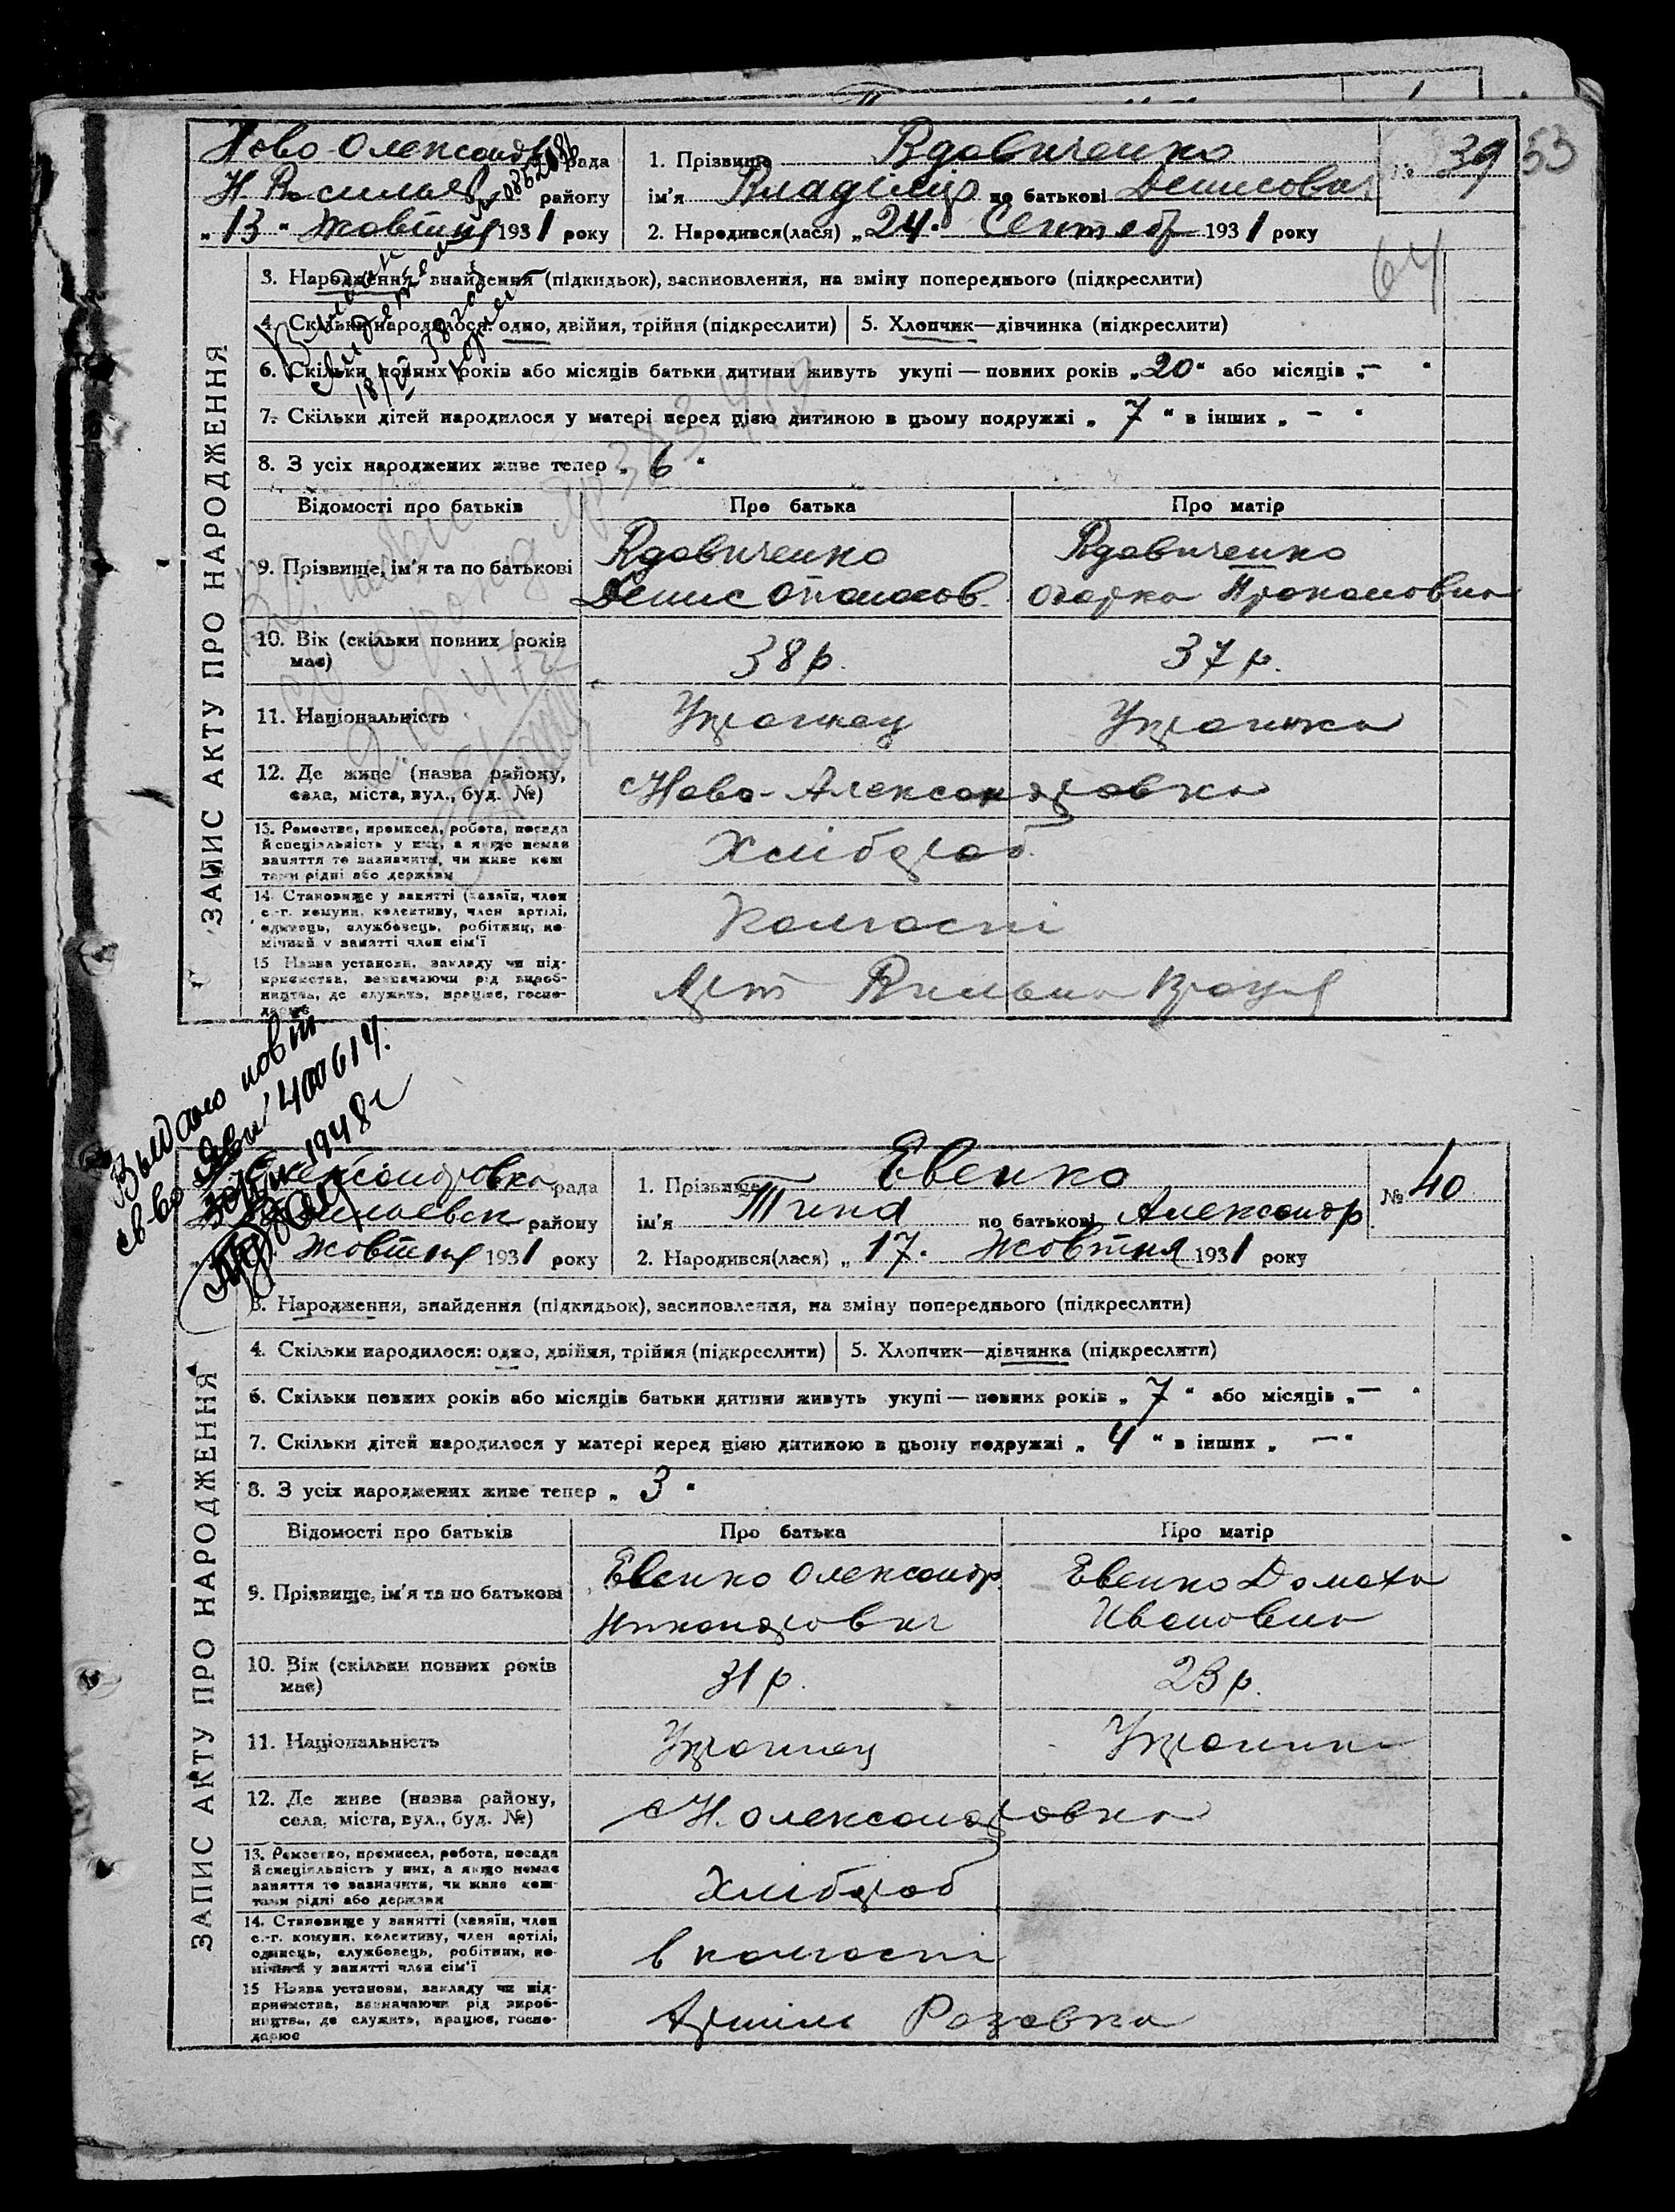 Ново-Олександр рада
Н. Васильев району
„13“ Жовтня 1931 року
1. Прізвище Вдовиченко
ім'я Владімір по батькові Денисович
2. Народився(лася) „24“ Сентябр 1931 року
№ 39
53
64
ЗАПИС АКТУ ПРО НАРОДЖЕННЯ
3. Народження, знайдення (підкидьок), засиновлення, на зміну попереднього (підкреслити)
4. Скільки народилося: одно, двійня, трійня (підкреслити)
5. Хлопчик—дівчинка (підкреслити)
6. Скільки повних років або місяців батьки дитини живуть укупі — повних років „20“ або місяців „—“
7. Скільки дітей народилося у матері перед цією дитиною в цьому подружжі „7“ в інших „—“
8. З усіх народжених живе тепер „6“
Відомості про батьків Про батька Про матір
9. Прізвище, ім'я та по батькові
Вдовиченко
Денис Опанасов.
Вдовиченко
Одарка Прокоповна
10. Вік (скільки повних років
має)
38 р. 37 р.
11. Національність Українец Українка
12. Де живе (назва району,
села, міста, вул., буд. №)
с Ново-Александровка
13. Ремество, промисел, робота, посада
й спеціяльність у них, а якщо немає
заняття то зазначити, чи живе кош
тами рідні або держави
Хлібороб
14. Становище у занятті (хазяїн, член
с.-г. комуни, колективу, член артілі,
одинець, службовець, робітник, по-
мічний у занятті член сім'ї
Колгоспі
15 Назва установи, закладу чи під-
приємства, зазначаючи рід вироб-
ництва, де служить, працює, госпо-
дарює
Арт Вильна Праця
Выдано повт
св-во 400614.
1948 г
Олександровка рада
Васильевск району
Жовтня 1931 року
1. Прізвище Евенко
ім'я Тина по батькові Александр
2. Народився(лася) „17“ Жовтня 1931 року
№ 40
ЗАПИС АКТУ ПРО НАРОДЖЕННЯ
3. Народження, знайдення (підкидьок), засиновлення, на зміну попереднього (підкреслити)
4. Скільки народилося: одно, двійня, трійня (підкреслити)
5. Хлопчик—дівчинка (підкреслити)
6. Скільки повних років або місяців батьки дитини живуть укупі — повних років „7“ або місяців „—“
7. Скільки дітей народилося у матері перед цією дитиною в цьому подружжі „4“ в інших „—“
8. З усіх народжених живе тепер „3“
Відомості про батьків Про батька Про матір
9. Прізвище, ім'я та по батькові
Евенко Олександр
Никандрович
Евенко Домаха
Ивановна
10. Вік (скільки повних років
має)
31 р. 23 р.
11. Національність Українец Українка
12. Де живе (назва району,
села, міста, вул., буд. №)
с Н. Олександровка
13. Ремество, промисел, робота, посада
й спеціяльність у них, а якщо немає
заняття то зазначити, чи живе кош-
тами рідні або держави
Хлібороб
14. Становище у занятті (хазяїн, член
с.-г. комуни, колективу, член артілі,
одинець, службовець, робітник, по-
мічний у занятті член сім'ї
в колгоспі
15 Назва установи, закладу чи під-
приємства, зазначаючи рід вироб-
ництва, де служить, працює, госпо-
дарює
Артіль Розовка